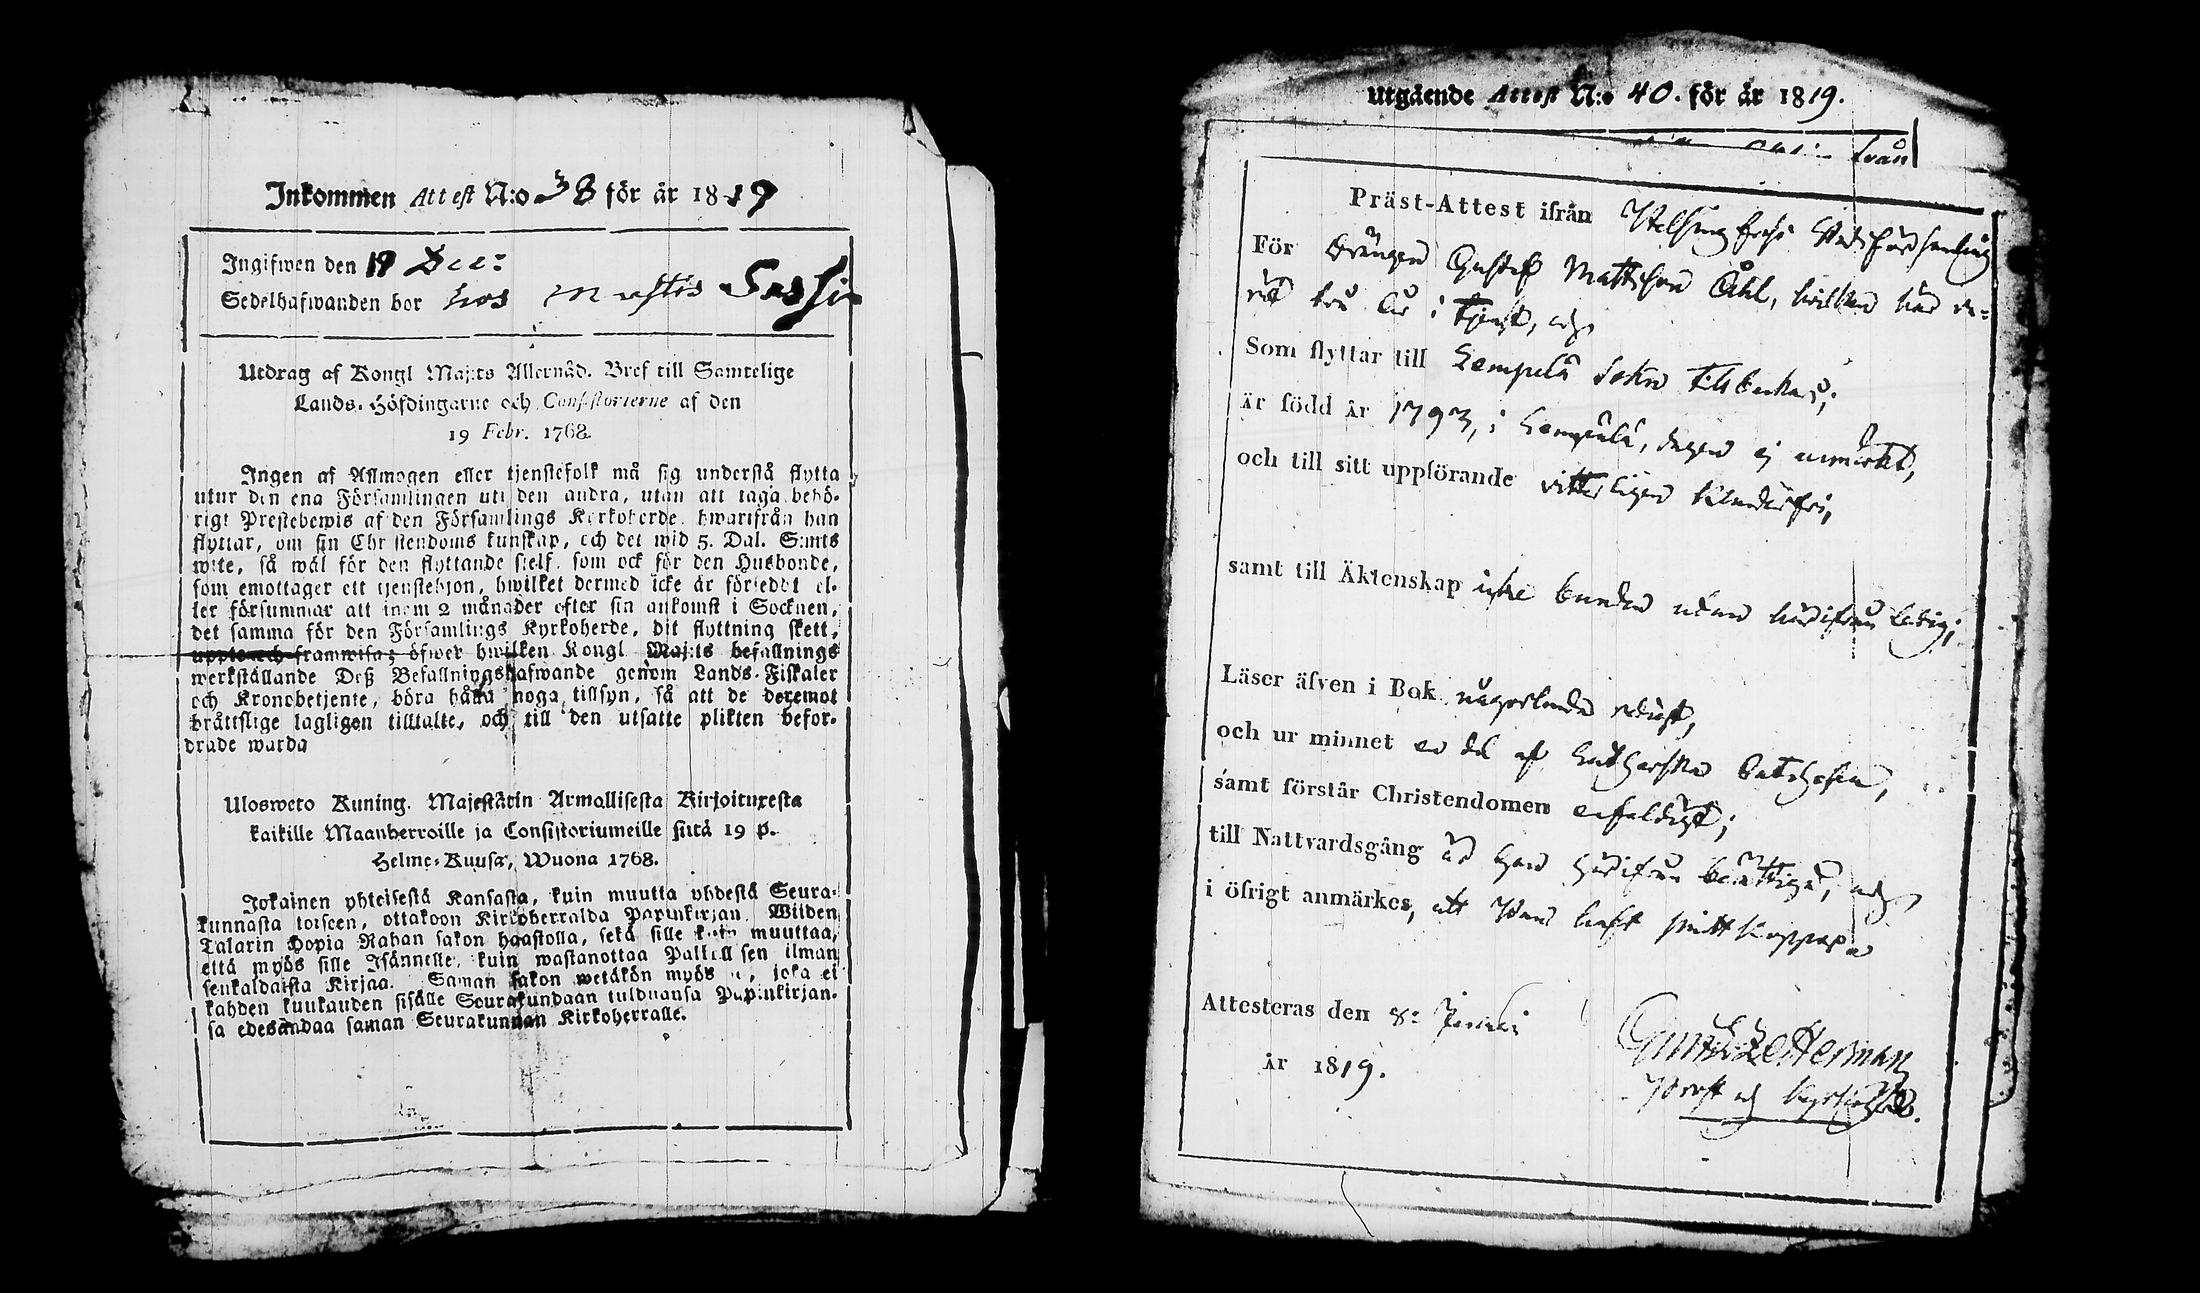 Inkommen Attest N:o 38 för år 1819
Ingifwen den 19 Dec:
Sedelhafwanden bor hos
Utdrag af Kongl Maj:ts Allernåd. Bref till Samtelige
Lands-Höfdingarne och Consistorierne af den
19 Febr. 1768.
Ingen af Allmogen eller tjenstefolk må sig understå flytta
utur den ena Församlingen uti den andra, utan att taga behö-
rigt Prestebewis af den Församlings Kyrkoherde, hwarifrån han
flyttar, om sin Christendoms kunskap, och det wid 5. Dal. S:mts
wite, så wäl för den flyttande sielf, som ock för den Husbonde,
som emottager ett tjenstehjon, hwilket dermed icke är försedt el-
ler försummar att inom 2 månader efter sin ankomst i Socknen,
det samma för den Församlings Kyrkoherde, dit flyttning skett,
framwisa; öfwer hwilken Kongl Maj:ts befallnings
werkställande Deß Befallningshafwande genom Lands-Fiskaler
och Kronobetjente, böra hålla noga tillsyn, så att de deremot
bråttslige lagligen tilltalte, och till den utsatte plikten befor-
drade warda
Ulosweto Kuning. Majestätin Armollisesta Kirjoituxesta
kaikille Maanherroille ja Consistoriumeille siitä 19 p.
Helme-Kuusa, Wuona 1768.
Jokainen yhteisestä Kansasta, kuin muutta yhdestä Seura-
kunnasta toiseen, ottakoon Kirkoherralda Papinkirjan. Wiiden
Talarin Hopia Rahan sakon haastolla, sekä sille kuin muuttaa,
että myös sille Isännelle, kuin wastanottaa Palkollisen ilman
senkaldaista Kirjaa. Saman sakon wetäkön myös se, joka ei
kahden kuukauden sisälle Seurakundaan tulduansa Papinkirjan-
sa edesandaa saman Seurakunnan Kirkoherralle.
utgående Attest N:o 40. för år 1819.
från
Präst-Attest ifrån Helsingfors Stadsförsamling
För Drängen Gustaf Mattsson Åhl, hvilken här va-
rit två År i Tjenst, och
Som flyttar till Lempälä Sokn tillbaka;
är född år 1793, i Lempälä, dagen ej anmärkt,
och till sitt uppförande vitterligen klanderfri,
samt till Äktenskap icke bunden utan härifrån ledig;
Läser äfven i Bok någorlunda redigt,
och ur minnet en del af Lutherska Catechesen,
samt förstår Christendomen enfaldigt;
till Nattvardsgång är han härifrån berättigad, och
i öfrigt anmärkes, att Han haft smittkopporna
Attesteras den 8: Junii
år 1819.
Zetterman
Prost och Kyrkoherde.